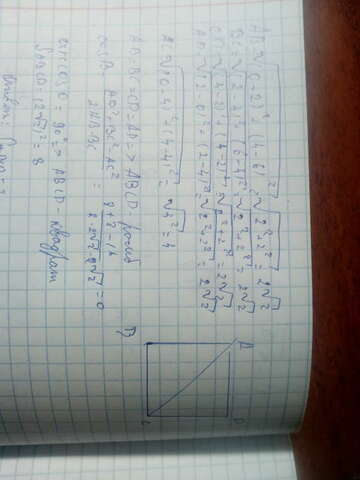 AB = √(0-2)² + (4-6)² = √2²+2² = 2√2
BC = √(2-4)² + (6-4)² = √2²+2² = 2√2
CD = √(4-2)² + (4-2)² = √2²+2² = 2√2
AD = √(2-0)² + (2-4)² = √2²+2² = 2√2
AC = √(0-4)² + (4-4)² = √4² = 4
AB=BC=CD=AD => ABCD - ромб
AB²+BC²-AC²
2·AB·BC
= 8+8-16
2·2√2·2√2
= 0
= 90° => ABCD - квадрат
S ABCD = (2√2)² = 8
B
C
D